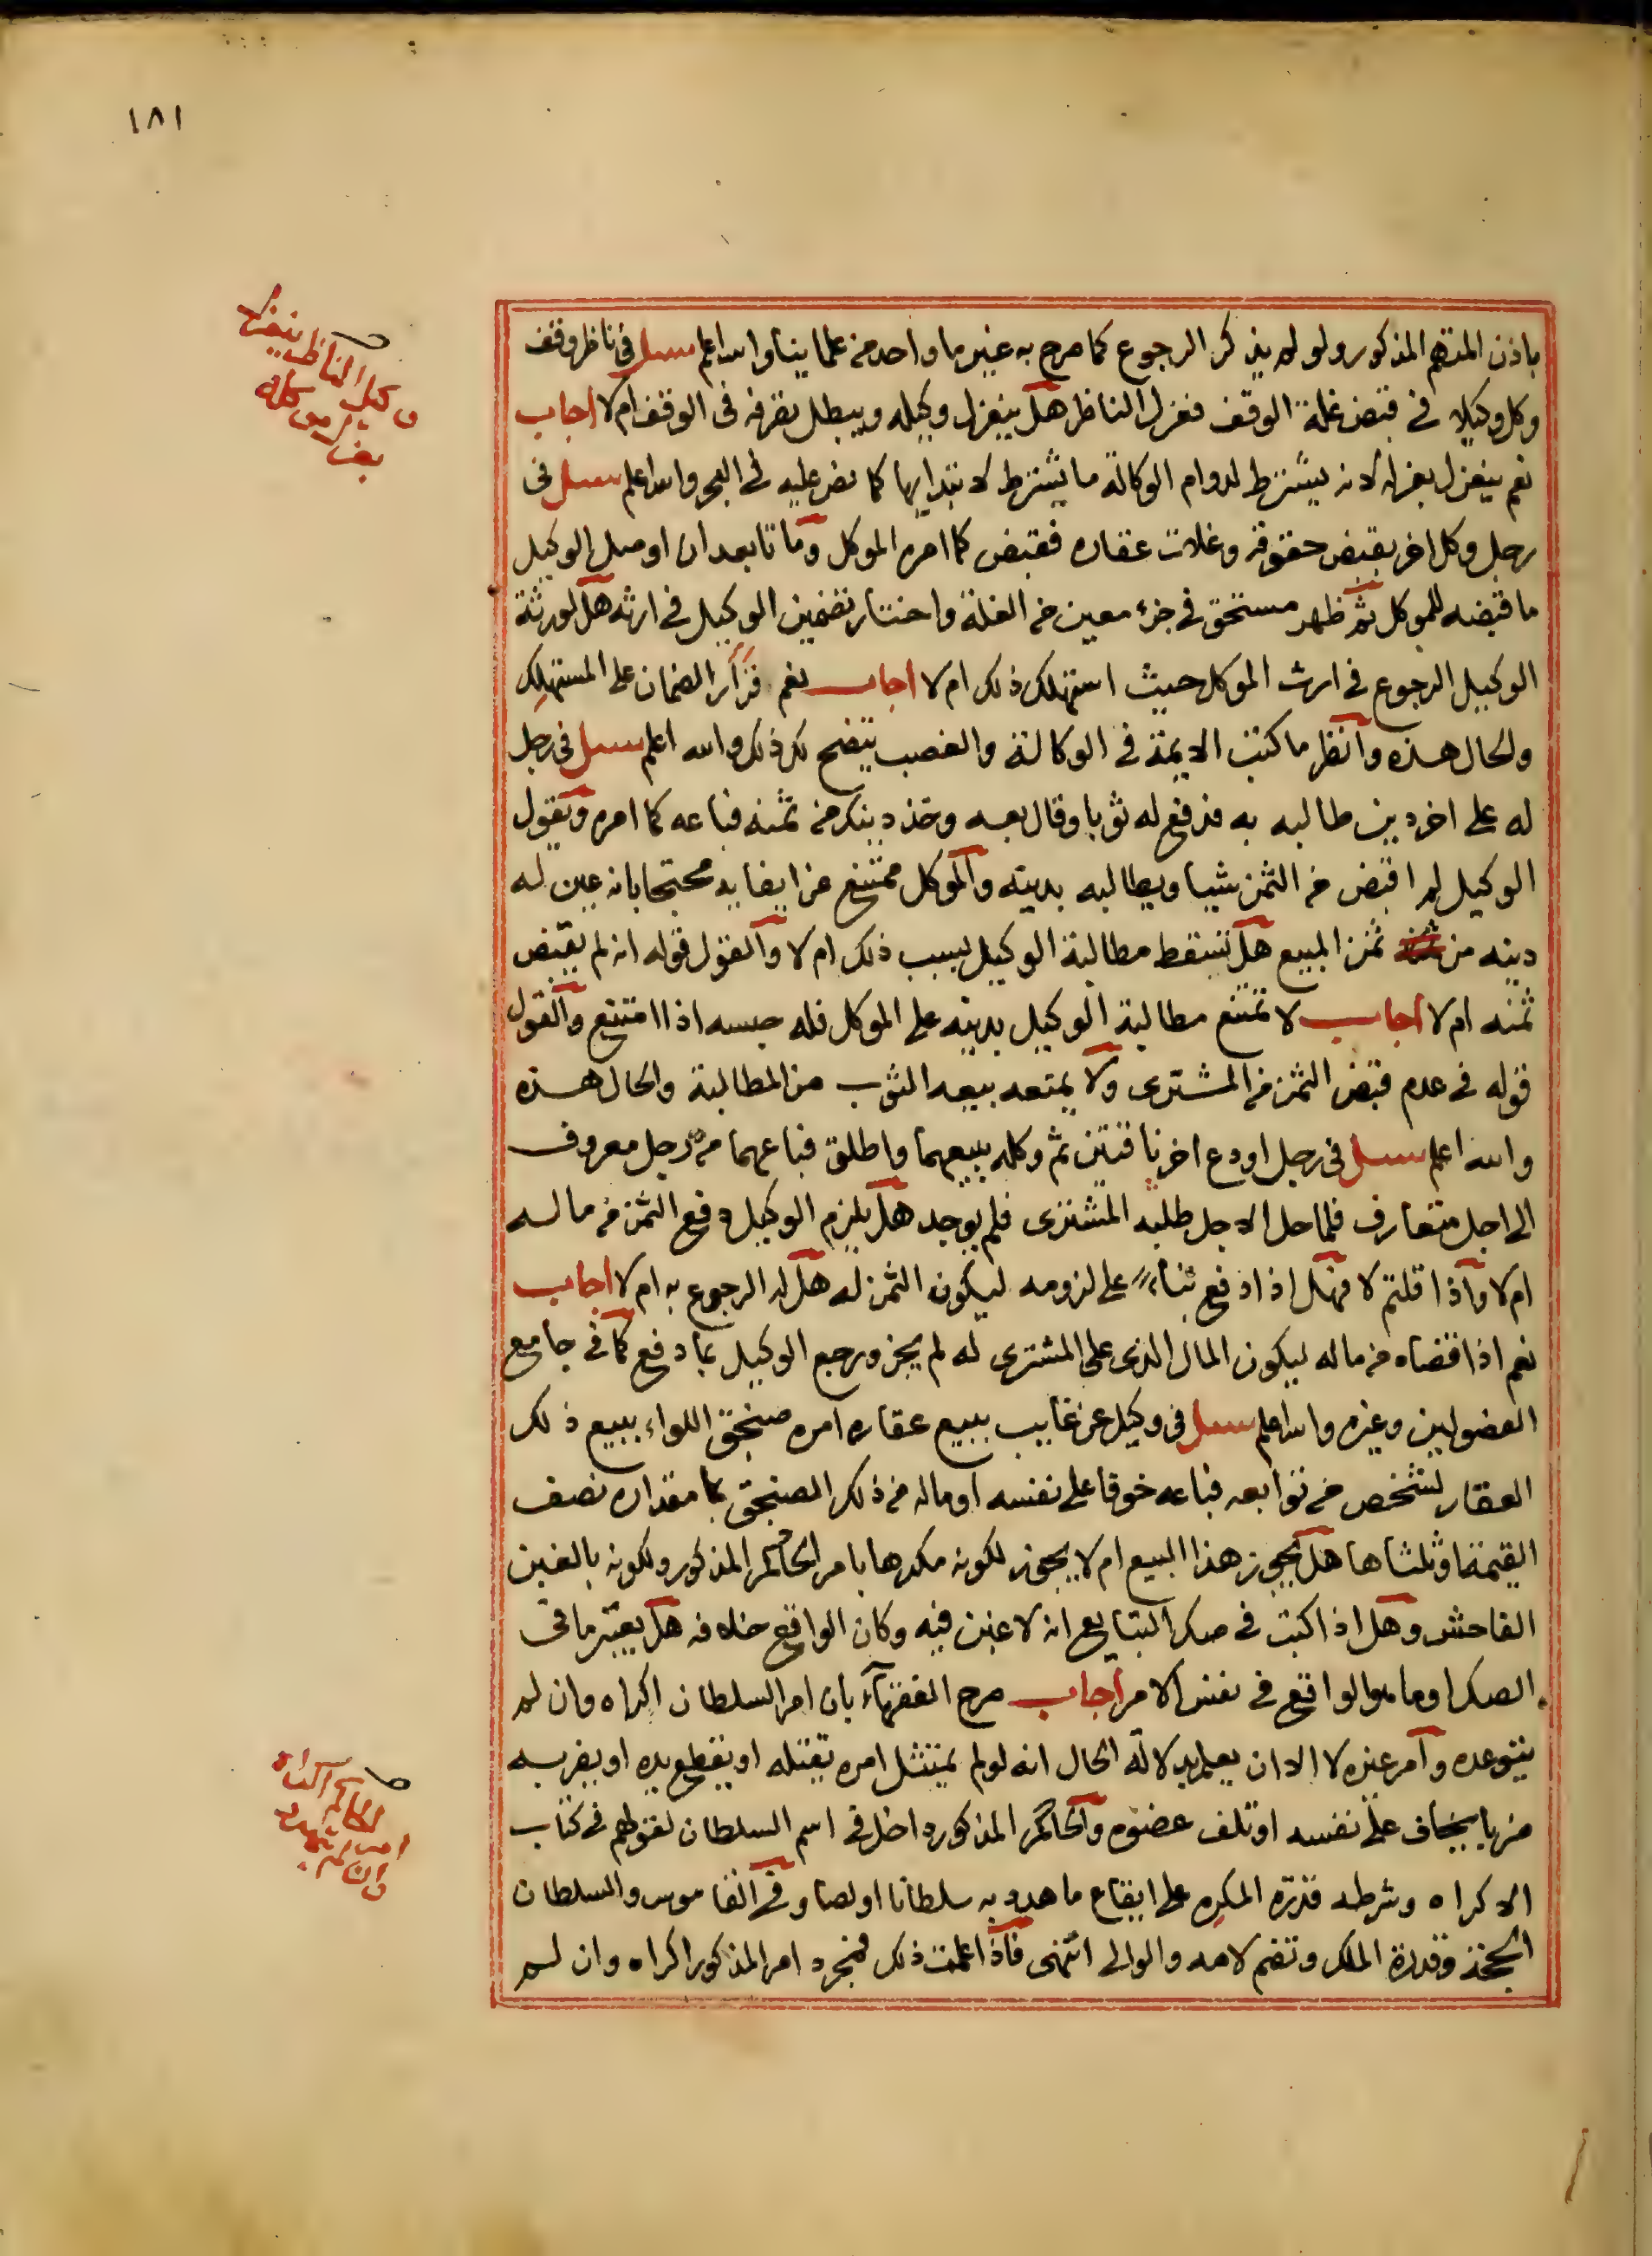 ١٨١
باذن المتهم المذكور ولو لم يذكر الرجوع كما صرح به غير ما واحد من علمائنا والله اعلم سىل فى ناظر وقف
وكل وكيلا فى قبض غلة الوقف فعزل الناظر هل ينعزل وكيله ويبطل تصرفه فى الوقف ام لا اجاب
نعم ينعزل بعزله لانه يشترط لدوام الوكالة ما يشترط لابتدايها كما نص عليه فى البحر والله اعلم سىل فى
رجل وكل اخر بقبض حقوقه وغلات عقاره فقبض كما امره الموكل وماتا بعد ان اوصل الوكيل
ما قبضه للموكل ثم ظهر مستحق فى جزء معين من الغلة واختار تضمين الوكيل فى ارثه هل لورثة
الوكيل الرجوع فى ارث الموكل حيث استهلك ذلك ام لا اجاب نعم قرار الضمان على المستهلك
والحال هذه وانظر ما كتبت الايمة فى الوكالة والغصب يتضح لك ذلك والله اعلم سىل فى رجل
له على اخر دين طالبه به فدفع له ثوبا وقال بعه وخذ دينك من ثمنه فباعه كما امره ويقول
الوكيل لم اقبض من الثمن شيا ويطالبه بدينه والموكل ممتنع عن ايفايه محتجا بانه عين له
دينه من ثمن المبيع هل تسقط مطالبة الوكيل بسبب ذلك ام لا والقول قوله انه لم يقبض
ثمنه ام لا اجاب لا تمتنع مطالبة الوكيل بدينه على الموكل فله حبسه اذا امتنع والقول
قوله فى عدم قبض الثمن من المشترى ولا يمنعه بيعه الثوب من المطالبة والحال هذه
والله اعلم سىل فى رجل اودع اخر ناقتين ثم وكله ببيعهما واطلق فباعهما من رجل معروف
الى اجل متعارف فلما حل الاجل طلبه المشترى فلم يوجد هل يلزم الوكيل دفع الثمن من ماله
ام لا واذا قلتم لا فهل اذا دفع بناء على لزومه ليكون الثمن له هل له الرجوع به ام لا اجاب
نعم اذا قضاه من ماله ليكون المال الذى على المشترى له لم يجز ورجع الوكيل بما دفع كما فى جامع
الفصولين وغيره والله اعلم سىل فى وكيل عن غايب ببيع عقاره امره صنجق اللواء ببيع ذلك
العقار لشخص من توابعه فباعه خوفا على نفسه او ماله من ذلك الصنجق بما مقداره نصف
القيمة او ثلثاها هل يجوز هذا البيع ام لا يجوز لكونه مكرها بامر الحاكم المذكور ولكونه بالغبن
الفاحش وهل اذا كتب فى صك التبايع انه لا غبن فيه وكان الواقع خلافه هل يعتبر ما فى
الصك او ما هو الواقع فى نفس الامر اجاب صرح الفقهاء بان امر السلطان اكراه وان لم
يتوعده وامر غيره لا الا ان يعلم بدلالة الحال انه لو لم يمتثل امره يقتله او يقطع يده او يضربه
ضربا يخاف على نفسه او تلف عضوه والحاكم المذكور داخل فى اسم السلطان لقولهم فى كتاب
الاكراه وشرطه قدرة المكره على ايقاع ما هدد به سلطانا او لصا وفى القاموس والسلطان
الحجة وقدرة الملك وتضم لامه والوالى انتهى فاذا علمت ذلك فمجرد امر المذكور اكراه وان لم
وكيل الناظر ينعزل
بعزل موكله
امر الحاكم اكراه
وان لم يتهدد